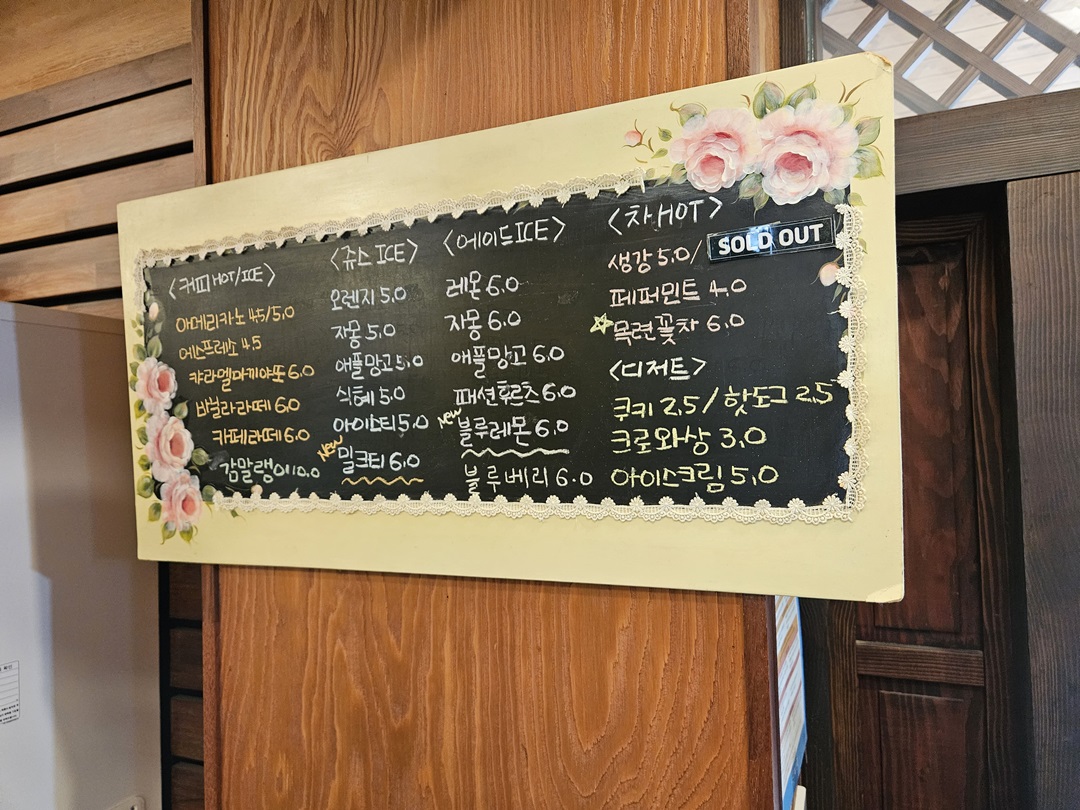 <커피 HOT/ICE>
아메리카노 4.5/5.0
에스프레소 4.5
캬라멜마끼야또 6.0
바닐라라떼 6.0
카페라떼 6.0
감말랭이 10.0
<쥬스 ICE>
오렌지 5.0
자몽 5.0
애플망고 5.0
식혜 5.0
아이스티 5.0
New
밀크티 6.0
<에이드 ICE>
레몬 6.0
자몽 6.0
애플망고 6.0
패션후르츠 6.0
new
블루레몬 6.0
블루베리 6.0
<차 HOT>
생강 5.0/ SOLD OUT
페퍼민트 4.0
☆목련꽃차 6.0
<디저트>
쿠키 2.5/핫도그 2.5
크로와상 3.0
아이스크림 5.0